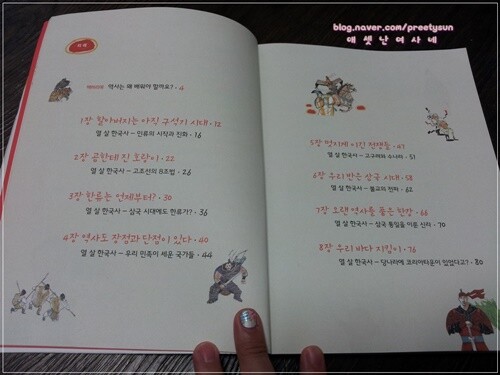 blog.naver.com/preetysun
애 셋 난 여 사 네
차례
역사는 왜 배워야 할까요? · 4
1장 할아버지는 아직 구석기 시대 · 12
열 살 한국사 – 인류의 시작과 진화 · 16
2장 곰한테 진 호랑이 · 22
열 살 한국사 – 고조선의 8조법 · 26
3장 한류는 언제부터? · 30
열 살 한국사 – 삼국 시대에도 한류가? · 36
4장 역사도 장점과 단점이 있다 · 40
열 살 한국사 – 우리 민족이 세운 국가들 · 44
5장 멋지게 이긴 전쟁들 · 47
열 살 한국사 – 고구려와 수나라 · 51
6장 우리 반은 삼국 시대 · 58
열 살 한국사 – 불교의 전파 · 62
7장 오랜 역사를 품은 한강 · 66
열 살 한국사 – 삼국 통일을 이룬 신라 · 70
8장 우리 바다 지킴이 · 76
열 살 한국사 – 당나라에 코리아타운이 있었다고? · 80